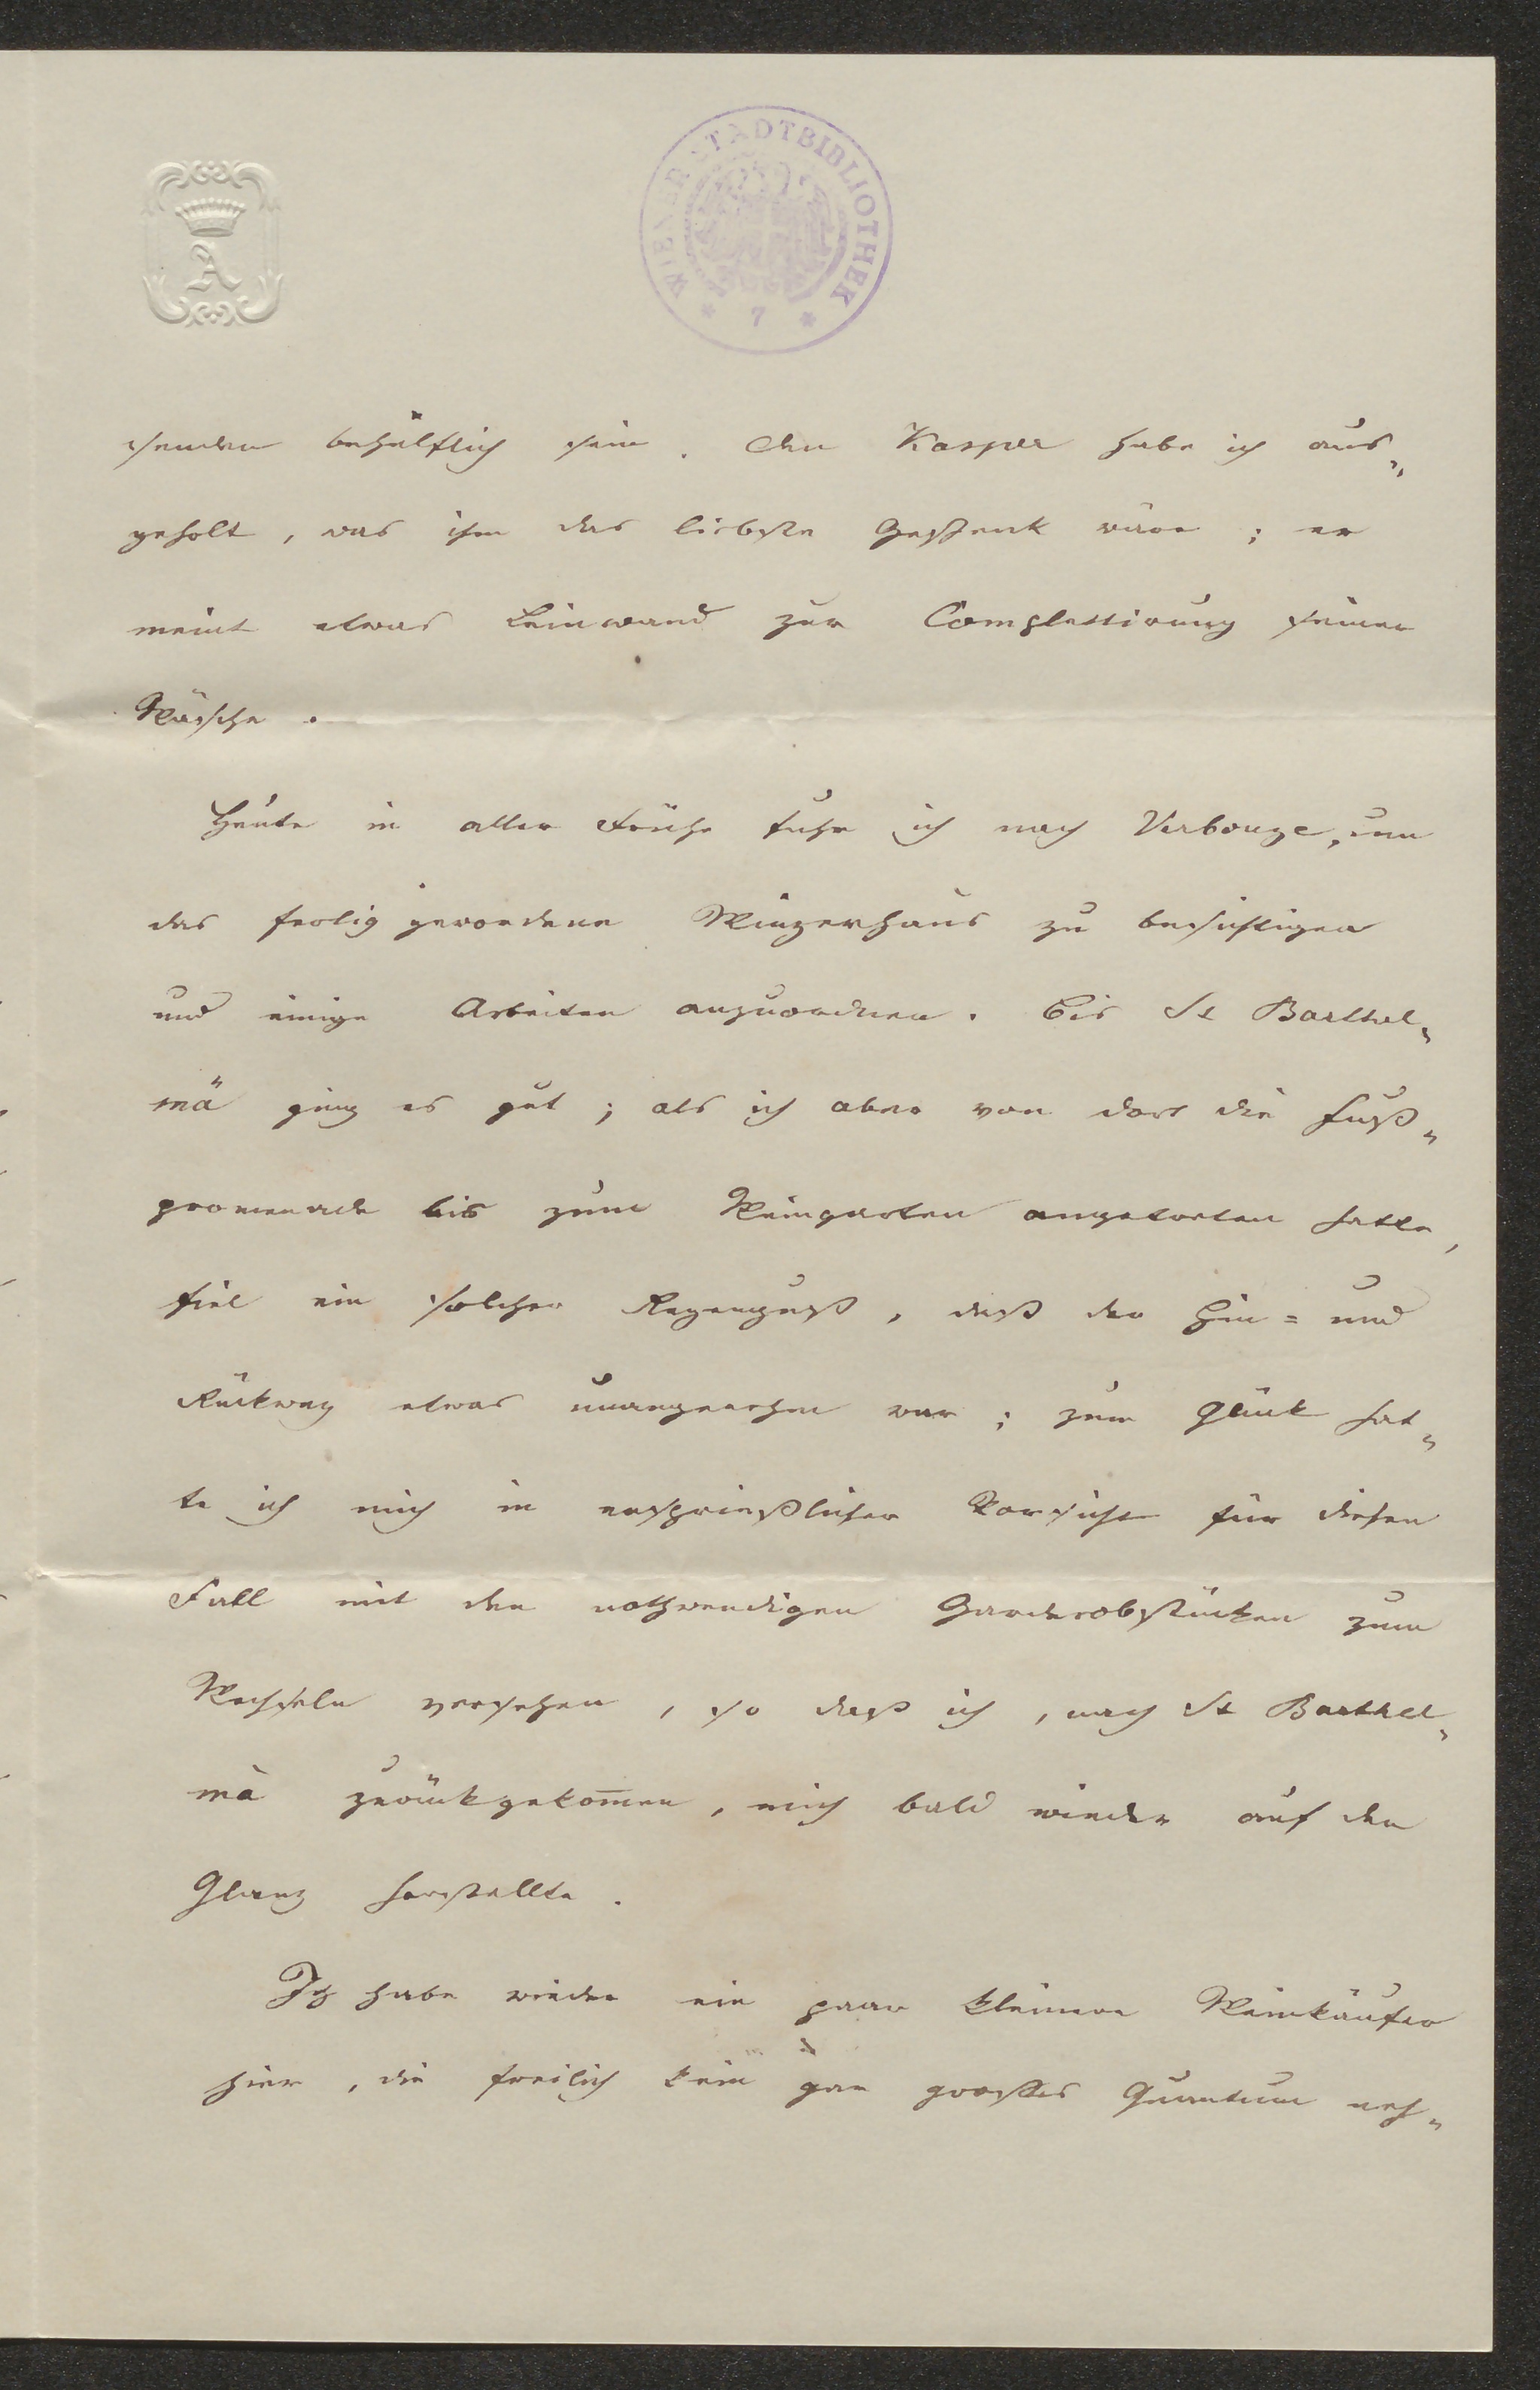 WIENER STADTBIBLIOTHEK
* 7 *
A
senden behülflich sein. Den Kasper habe ich aus„
geholt, was ihm das liebste Geschenk wäre; er
meint etwas Leinwand zur Complettirung seiner
Wäsche.
Heute in aller Frühe fuhr ich nach Verbouze, um
das fertig gewordene Winzerhaus zu besichtigen
und einige Arbeiten anzuordnen. Bis St Barthel„
mä ging es gut; als ich aber von dort die Fuß„
promenade bis zum Weingarten angetreten hatte,
fiel ein solcher Regenguß, daß der Hin= und
Rückweg etwas unangenehm war; zum Glück hat„
te ich mich in ersprießlicher Vorsicht für diesen
Fall mit den nothwendigen Garderobstücken zum
Wechseln versehen, so daß ich, nach St Barthel„
mä zurückgekom̅en, mich bald wieder auf den
Glanz herstellte.
Ich habe wieder ein paar kleinere Weinkäufer
hier, die freilich kein gar großes Quantum neh„